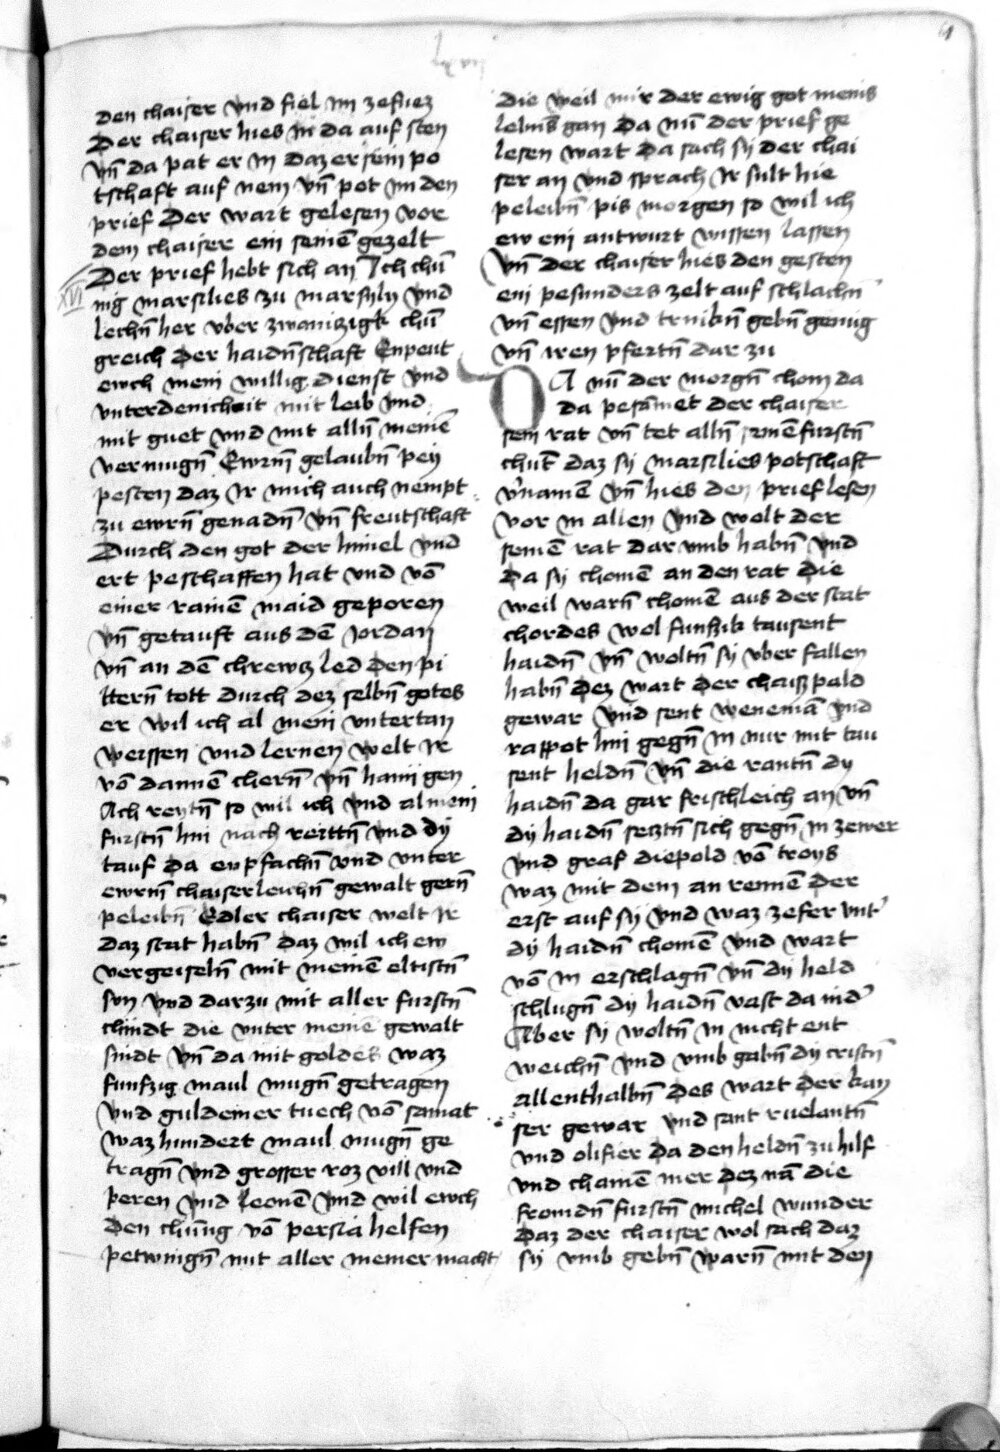 61
den chaiser vnd fiel im zefuez
Der chaiser hies in da auf sten
vn̄ da pat er in daz er sein po
tschaft auf nem vn̄ pot im den
prief Der wart gelesen vor
dem chaiser ein seinē gezelt
Der prief hebt sich an Ich chū
XVI
nig marsilies zu marsyly vnd
lechn̄ her vber zwainzigk chū
greich der haidn̄schaft Enpeut
ewch mein willig dienst vnd
vnterdenicheit mit leib vnd
mit guet vnd mit alln̄ meinē
vermugn̄ Ewrm̄ gelaubn̄ pey
pesten daz Ir mich auch nempt
zu ewrn̄ genadn̄ vn̄ freutschaft
Durch den got der himel vnd
ert peschaffen hat vnd vō
einer rainē maid geporen
vn̄ getauft aus dē Jordan
vn̄ an dē chrewtz led den pi
ttern̄ tott durch dez selbn̄ gotes
er wil ich al mein vntertan
weissen vnd lernen welt Ir
vō dannē chern̄ vn̄ haim gen
Ach reytn̄ so wil ich vnd al mein
furstn̄ hin nach reittn̄ vnd dy
tauf da enpfachn̄ vnd vnter
ewrm̄ chaiserleichn̄ gewalt gern̄
peleibn̄ Edler chaiser welt Ir
daz stat habn̄ daz wil ich ew
vergeiseln̄ mit meinē eltistn̄
sun vnd darzu mit aller furstn̄
chindt die vnter meinē gewalt
sindt vn̄ da mit goldes waz
funfzig maul mugn̄ getragen
vnd guldeiner tuech vō samat
waz hundert maul mugn̄ ge
tragn̄ vnd grosser roz vill vnd
peren vnd Leonē vnd wil ewch
den chunig vō persia helfen
petwingn̄ mit aller meiner macht
die weil mir der ewig got meins
lebns̄ gan Da nū der prief ge
lesen wart Da sach sy der chai
ser an vnd sprach Ir sult hie
peleibn̄ pis morgen so wil ich
ew ein antwurt wissen lassen
vn̄ der chaiser hies den gesten
ein pesunders zelt auf schlachn̄
vn̄ essen vnd trinkn̄ gebn̄ genug
vn̄ iren pfertn̄ dar zu
DA nū der morgn̄ chom da
da pesāmet der chaiser
sein rat vn̄ tet alln̄ seinē furstn̄
chunt daz sy marsilies potschaft
v'namē vn̄ hies den prief lesen
vor in allen vnd wolt der
seinē rat dar vmb habn̄ vnd
Da sy chomē an den rat die
weil warn̄ chomē aus der stat
chordes wol funfzik tausent
haidn̄ vn̄ woltn̄ sy vber fallen
habn̄ Dez wart der chaiser pald
gewar vnd sent weneman vnd
rappot hin gegn̄ in nur mit tau
sent heldn̄ vn̄ die rantn̄ dy
haidn̄ da gar frischleich an vn̄
dy haidn̄ setztn̄ sich gegn̄ in ze wer
vnd graf diepold vō troys
waz mit dem an rennē der
erst auf sy vnd waz ze fer vnt'
dy haidn̄ chomē vnd wart
vō in erschlagn̄ vn̄ dy held
schlugn̄ dy haidn̄ vast da nid'
Aber sy woltn̄ in nicht ent
weichn̄ vnd vmb gabn̄ dy cristn̄
allenthalbn̄ des wart der kay
ser gewar vnd sant ruelantn̄
vnd olifier da den heldn̄ zu hilf
vnd chamen mer dez nā die
fromdn̄ furstn̄ michel wunder
daz der chaiser wol sach daz
sy vmb gebn̄ warn̄ mit den